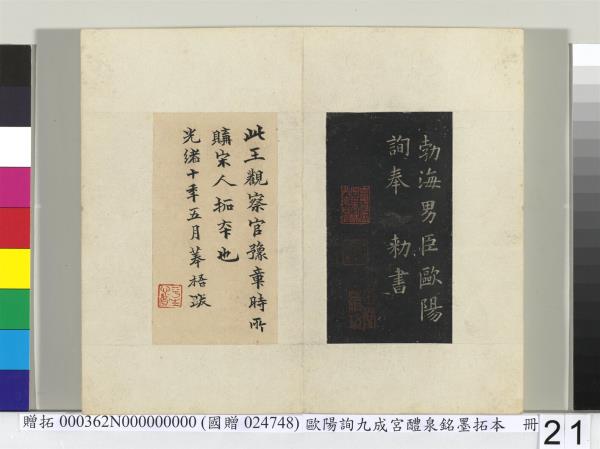 勃海男臣歐陽
詢奉 勅書
此王觀察官豫章時所
購宋人拓夲也
光緒十年五月 梧 
贈拓 000362N000000000 (國贈 024748) 歐陽詢九成宮醴泉銘墨拓本 冊
21